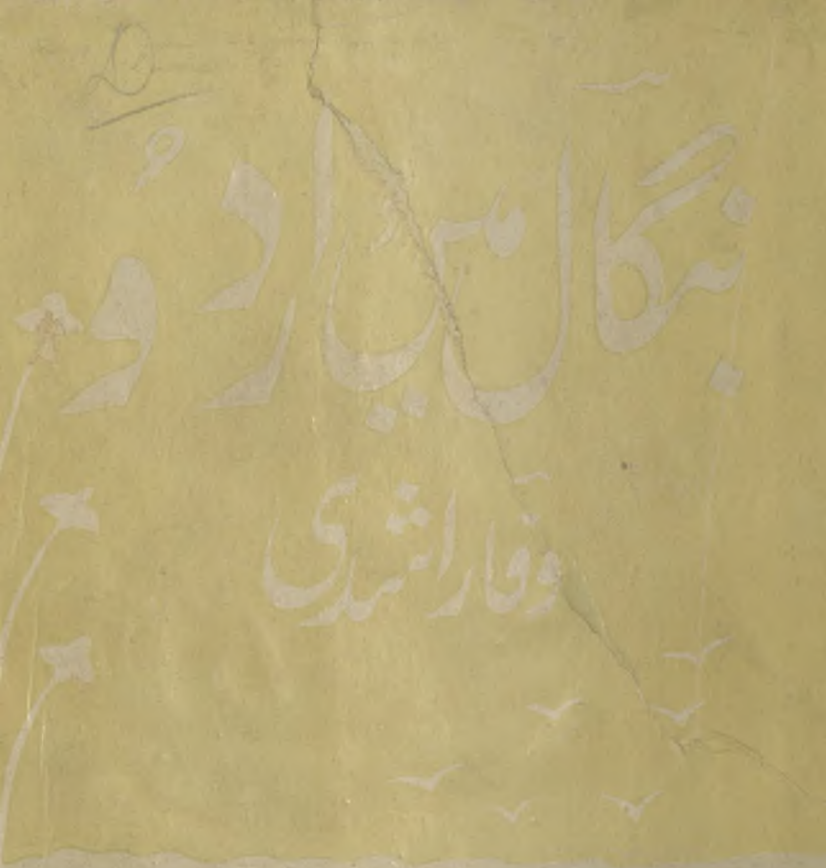 بنگال میں اُردو
وفا راشدی